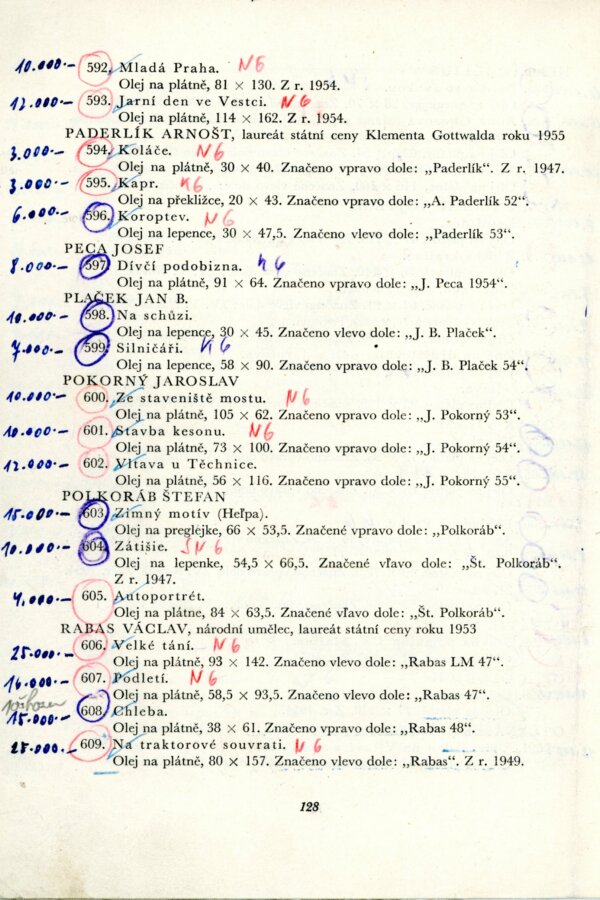 10.000.- 592. Mladá Praha. N6
Olej na plátně, 81 × 130. Z r. 1954.
12.000.- 593. Jarní den ve Vestci. N6
Olej na plátně, 114 × 162. Z r. 1954.
PADERLÍK ARNOŠT, laureát státní ceny Klementa Gottwalda roku 1955
3.000.- 594. Koláče. N6
Olej na plátně, 30 × 40. Značeno vpravo dole: „Paderlík“. Z r. 1947.
3.000.- 595. Kapr. K6
Olej na překližce, 20 × 43. Značeno vpravo dole: „A. Paderlík 52“.
6.000.- 596. Koroptev. N6
Olej na lepence, 30 × 47,5. Značeno vlevo dole: „Paderlík 53“.
PECA JOSEF
8.000.- 597. Dívčí podobizna. K6
Olej na plátně, 91 × 64. Značeno vpravo dole: „J. Peca 1954“.
PLAČEK JAN B.
10.000.- 598. Na schůzi.
Olej na lepence, 30 × 45. Značeno vlevo dole: „J. B. Plaček“.
7.000.- 599. Silničáři. K6
Olej na lepence, 58 × 90. Značeno vpravo dole: „J. B. Plaček 54“.
POKORNÝ JAROSLAV
10.000.- 600. Ze staveniště mostu. N6
Olej na plátně, 105 × 62. Značeno vpravo dole: „J. Pokorný 53“.
10.000.- 601. Stavba kesonu. N6
Olej na plátně, 73 × 100. Značeno vpravo dole: „J. Pokorný 54“.
12.000.- 602. Vltava u Těchnice.
Olej na plátně, 56 × 116. Značeno vpravo dole: „J. Pokorný 55“.
POLKORÁB ŠTEFAN
15.000.- 603. Zimný motív (Heľpa).
Olej na preglejke, 66 × 53,5. Značené vpravo dole: „Polkoráb“.
10.000.- 604. Zátišie. SN6
Olej na lepenke, 54,5 × 66,5. Značené vľavo dole: „Št. Polkoráb“.
Z r. 1947.
4.000.- 605. Autoportrét.
Olej na plátne, 84 × 63,5. Značené vľavo dole: „Št. Polkoráb“.
RABAS VÁCLAV, národní umělec, laureát státní ceny roku 1953
25.000.- 606. Velké tání. N6
Olej na plátně, 93 × 142. Značeno vlevo dole: „Rabas LM 47“.
16.000.- 607. Podletí. N6
Olej na plátně, 58,5 × 93,5. Značeno vlevo dole: „Rabas 47“.
15.000.- 608. Chleba.
Olej na plátně, 38 × 61. Značeno vpravo dole: „Rabas 48“.
25.000.- 609. Na traktorové souvrati. N6
Olej na plátně, 80 × 157. Značeno vlevo dole: „Rabas“. Z r. 1949.
128